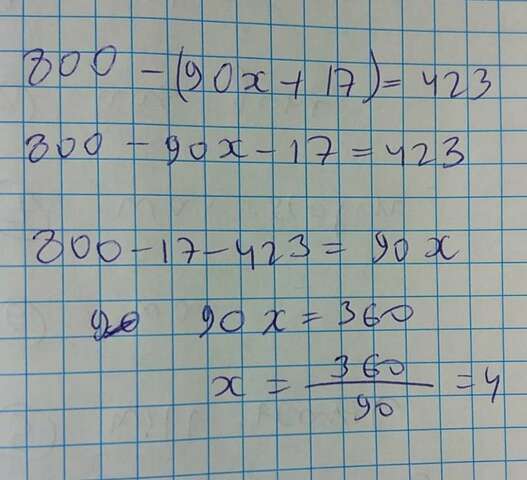 800 - (90x + 17) = 423
800 - 90x - 17 = 423
800 - 17 - 423 = 90x
90x = 360
x = 360/90 = 4